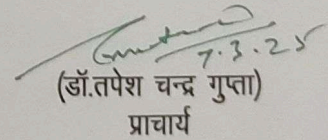 7.3.25
(डॉ.तपेश चन्द्र गुप्ता)
प्राचार्य